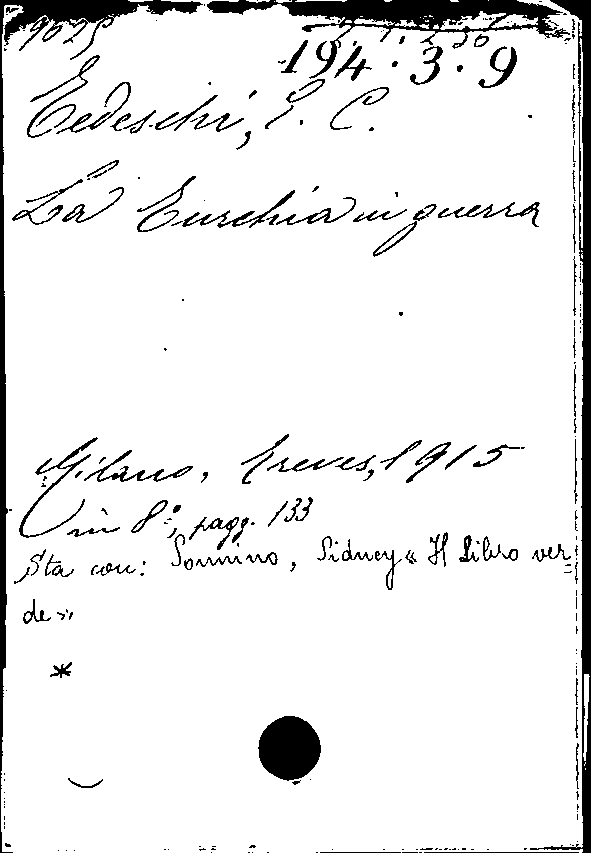 9025
194.3.9
Tedeschi, E. C.
La Turchia in guerra
Milano, Treves, 1915
in 8°, pagg. 133
Sta con: Sonnino, Sidney « Il Libro ver
de »
*